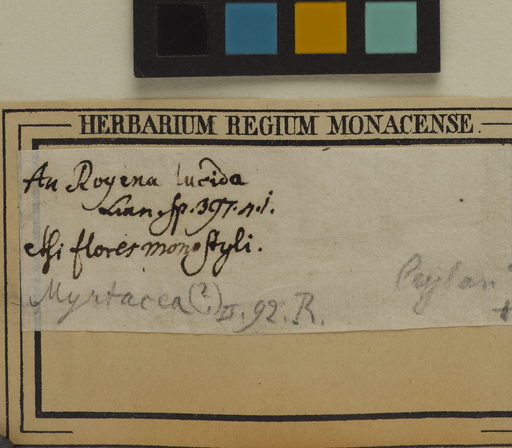 HERBARIUM REGIUM MONACENSE.
An Royena lucida
Linn. Sp. 397. n. 1.
etsi flores monostyli.
Myrtacea (?) II. 92. R.
Ceylan